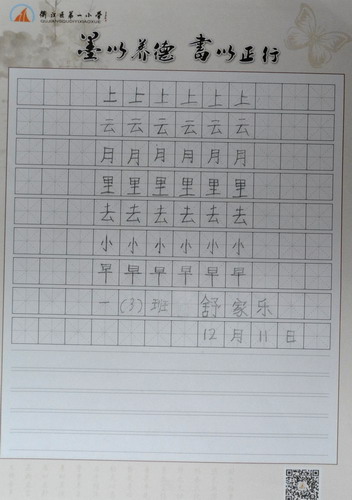 第一小学
墨以养德 書以正行
上上上上上上
云云云云云云
月月月月月月
里里里里里里
去去去去去去
小小小小小小
早早早早早早
一(3)班 舒家乐
12月11日